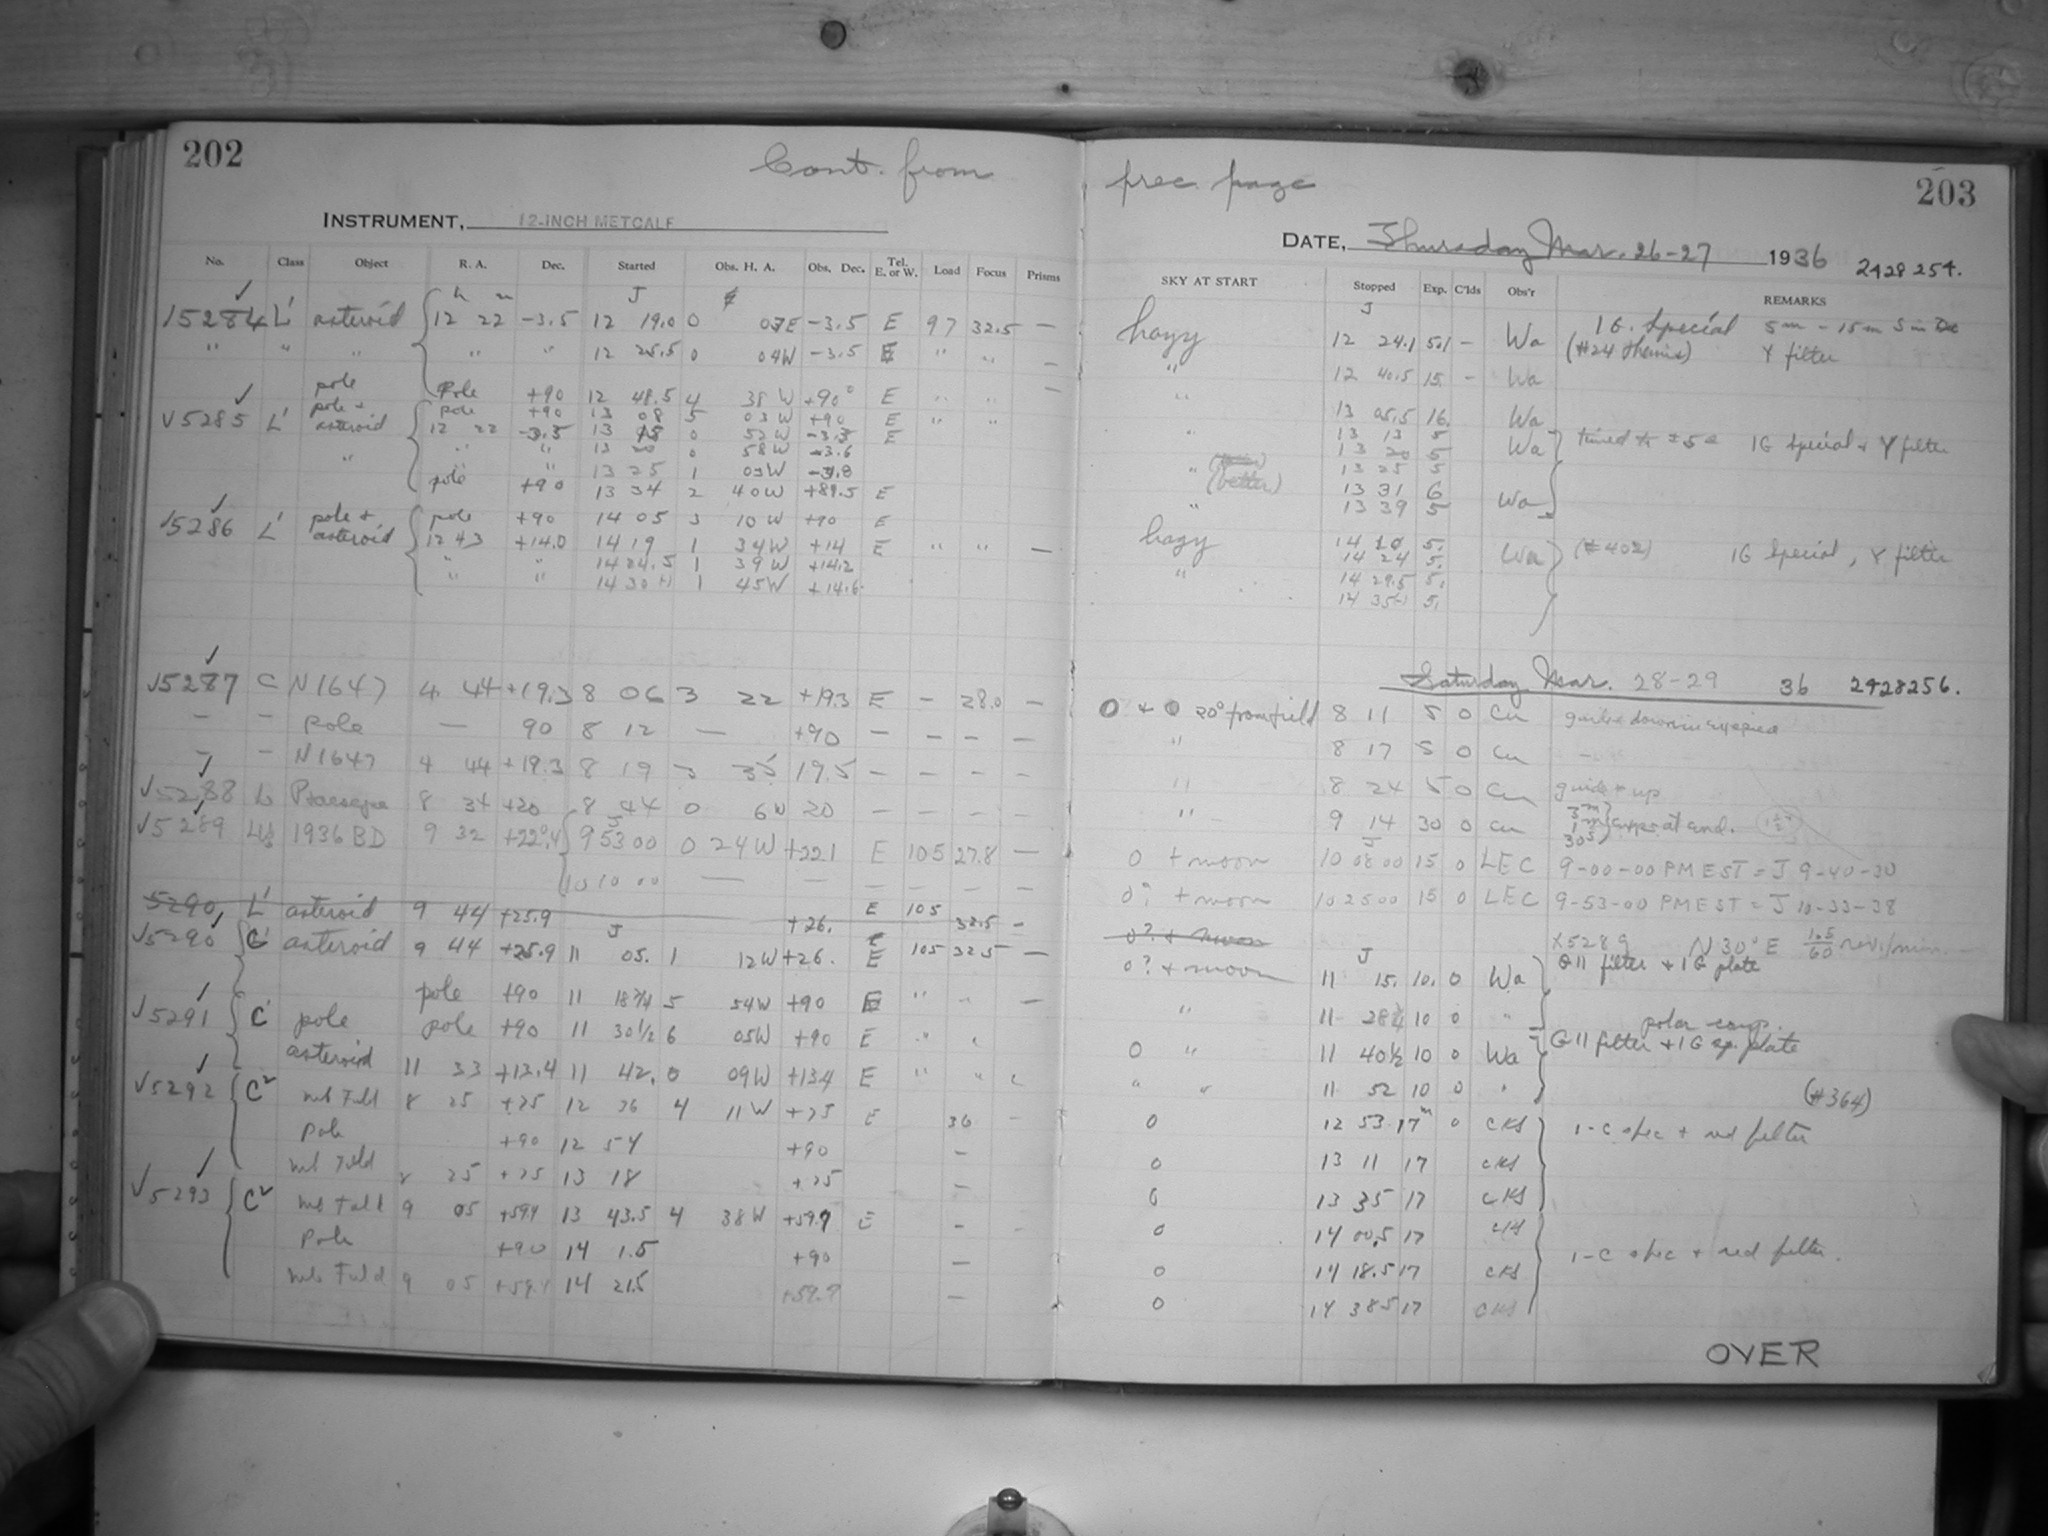 202
Cont. from
INSTRUMENT, 12-INCH METCALF
No. Class Object R. A. Dec. Started Obs. H. A. Obs. Dec. Tel. E. or W. Load Focus Prisms
h m J
15284 L' asteroid 12 22 -3.5 12 19.0 0 07E -3.5 E 97 32.5 —
" " " " " 12 25.5 0 04W -3.5 E " " —
pole Pole +90 12 48.5 4 38 W +90° E " " —
15285 L' pole + asteroid pole +90 13 08 5 03 W +90 E " "
12 22 -3.5 13 15 0 52 W -3.5 E
" " " 13 20 0 58W -3.6
" 13 25 1 03W -3.8
pole +90 13 34 2 40W +89.5 E
15286 L' pole + asteroid pole +90 14 05 3 10 W +90 E
12 43 +14.0 14 19 1 34W +14 E " " —
" " 14 24.5 1 39 W +14.2
" " 14 30 1 45W +14.6
15287 C N1647 4 44 +19.3 8 06 3 22 +19.3 E — 28.0 —
— — pole — 90 8 12 — +90 — — — —
— — N1647 4 44 +19.3 8 19 3 35 19.5 — — — —
15288 L Praesepe 8 34 +20 8 44 0 6W 20 — — — —
15289 1936 BD 9 32 +22°.4 9 53 00 0 24W +22.1 E 105 27.8 —
10 10 00 — — — — — —
5290 L' asteroid 9 44 +25.9 +26. E 105 32.5 —
15290 C' asteroid 9 44 +25.9 11 05. 1 12W +26. E 105 32.5 —
pole +90 11 18¾ 5 54W +90 E " " —
15291 C' pole pole +90 11 30½ 6 05W +90 E " "
asteroid 11 33 +13.4 11 42. 0 09W +13.4 E " "
15292 C² Mb Field 8 25 +25 12 36 4 11 W +25 E 36 —
Pole +90 12 54 +90 —
Mb Field 8 25 +25 13 18 +25 —
15293 C² Mb Field 9 05 +59.9 13 43.5 4 38W +59.9 E —
Pole +90 14 1.5 +90 —
Mb Field 9 05 +59.9 14 21.5 +59.9 —
prec. page
203
DATE, Thursday Mar. 26-27 1936 2428254.
SKY AT START Stopped Exp. C'lds Obs'r REMARKS
J
hazy 12 24.1 5.1 — Wa 1G. Special 5m - 15m S in Dec
(#24 Themis) Y filter
" 12 40.5 15. — Wa
" 13 05.5 16. Wa
" 13 13 5 Wa timed to ±5s 1G Special + Y filter
13 20 5
" (better) 13 25 5
13 31 6
" 13 39 5 Wa
hazy 14 10 5. Wa (#402) 1G Special, Y filter
14 24 5.
" 14 29.5 5.
14 35 5.
Saturday Mar. 28-29 36 2428256.
20° from field 8 11 5 0 Cu
" 8 17 5 0 Cu —
" 8 24 5 0 Cu guide + up
" 9 14 30 0 Cu 3m 1m 30s } exp. at end.
J
0 + moon 10 08 00 15 0 LEC 9-00-00 PM EST = J 9-40-30
0? + moon 10 25 00 15 0 LEC 9-53-00 PM EST = J 10-33-38
0? + moon X5289 N 30° E 1.5/60 rev./min.
J
0? + moon 11 15. 10. 0 Wa G11 filter + 1G plate
" 11 28¾ 10 0 " polar comp.
0 " 11 40½ 10 0 Wa G11 filter + 1G sp. plate
" " 11 52 10 0 " (#364)
0 12 53 17m 0 CKS 1-C spec + red filter
0 13 11 17 CKS
0 13 35 17 CKS
0 14 00.5 17 CKS
0 14 18.5 17 CKS 1-C spec + red filter.
0 14 38.5 17 CKS
OVER